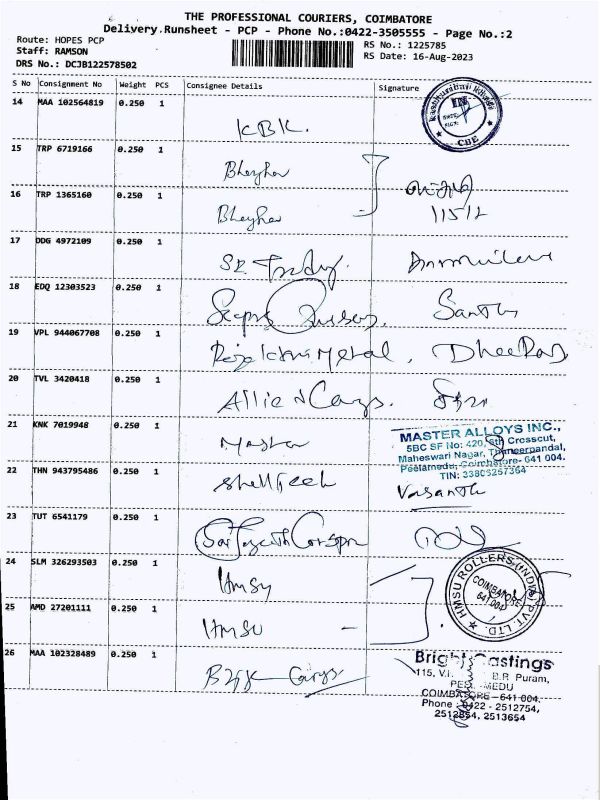 THE PROFESSIONAL COURIERS, COIMBATORE
Delivery Runsheet - PCP - Phone No.:0422-3505555 - Page No.:2
Route: HOPES PCP
Staff: RAMSON
DRS No.: DCJB122578502
RS No.: 1225785
RS Date: 16-Aug-2023
S No Consignment No Weight PCS Consignee Details Signature
14 MAA 102564819 0.250 1
KBK.
CBE
15 TRP 6719166 0.250 1
16 TRP 1365160 0.250 1
17 DDG 4972109 0.250 1
18 EDQ 12303523 0.250 1
Santh
19 VPL 944067708 0.250 1
Metal, Dheeraj
20 TVL 3420418 0.250 1
Allied
21 KNK 7019948 0.250 1
MASTER ALLOYS INC.,
5BC SF No: 420, 6th Crosscut,
Maheswari Nagar, Thaneerpandal,
Peelamedu, Coimbatore- 641 004.
TIN: 33806257364
22 THN 943795486 0.250 1
Shelltech Vasanth
23 TUT 6541179 0.250 1
24 SLM 326293503 0.250 1
Hmsu
HMSU ROLLERS (INDIA) PVT. LTD.
COIMBATORE
641 004
25 AMD 27201111 0.250 1
HMSU
26 MAA 102328489 0.250 1
Bright Castings
115, V. B.R. Puram,
PEELAMEDU
COIMBATORE - 641 004.
Phone : 0422 - 2512754,
2512854, 2513654